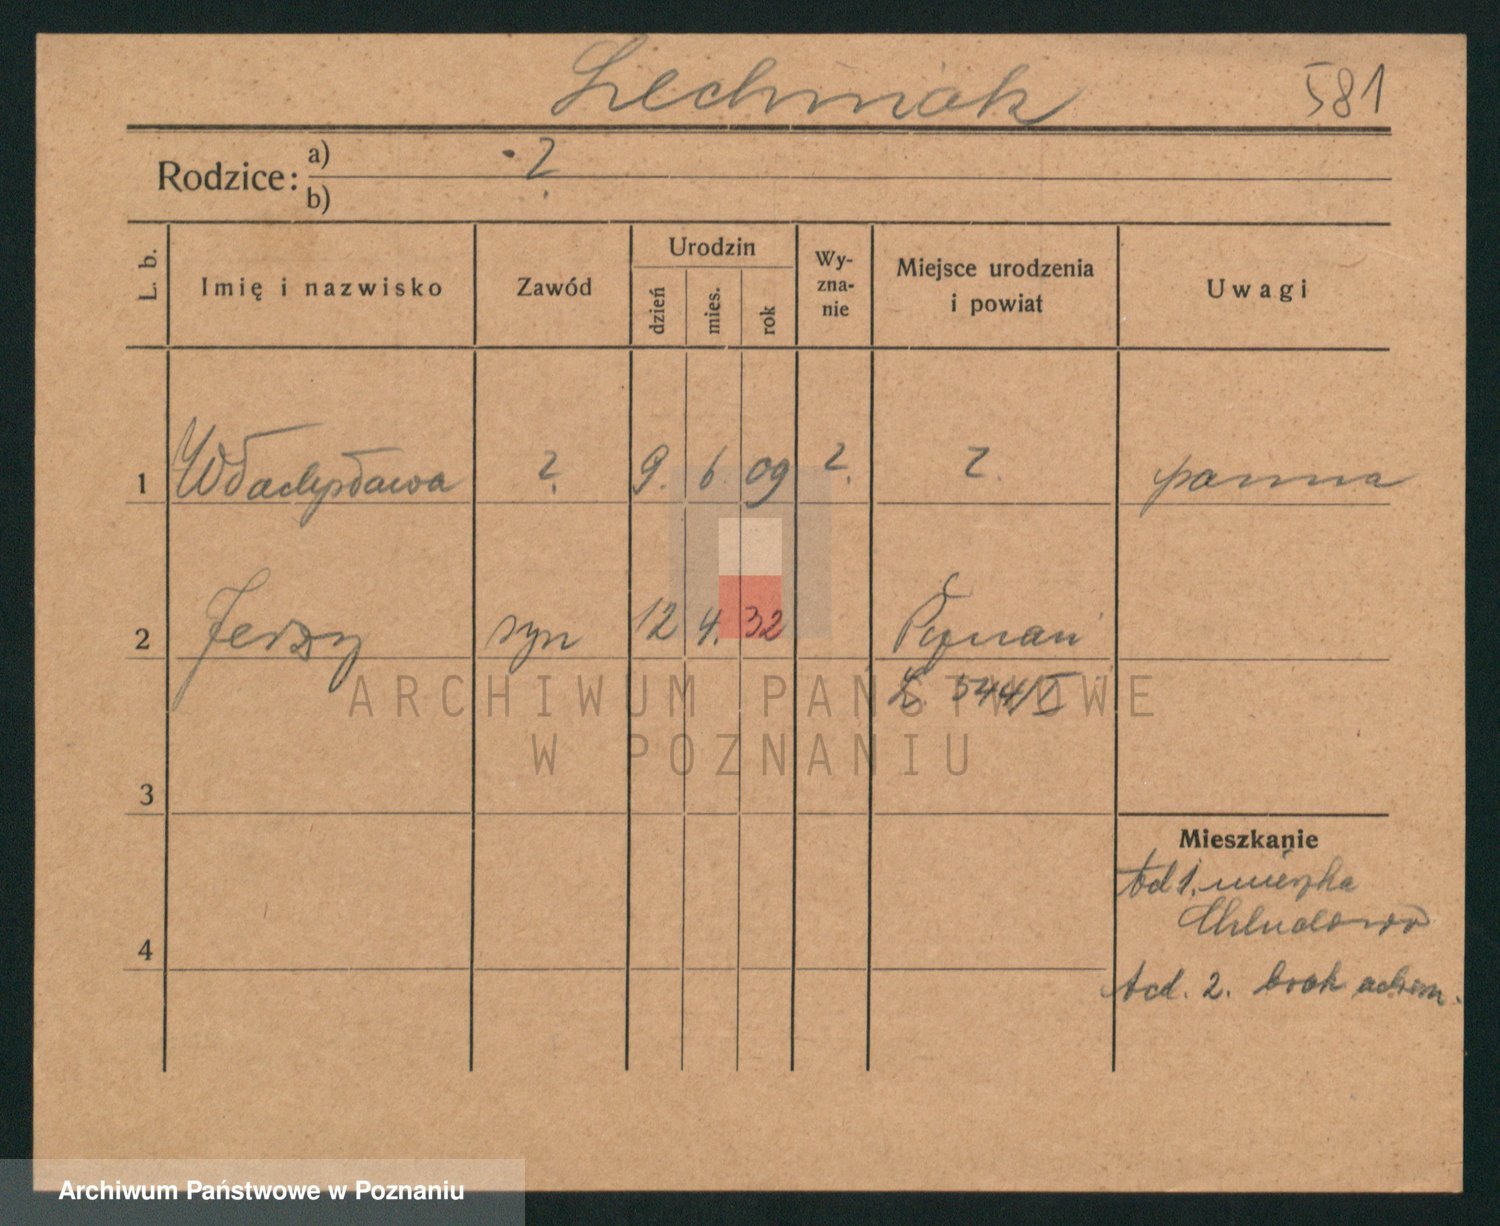 Lechniak 581
Rodzice: a) ?
b)
L. b. Imię i nazwisko Zawód Urodzin dzień mies. rok Wy-zna-nie Miejsce urodzenia i powiat Uwagi
1 Władysława ? 9. 6. 09 ? ? panna
2 Jerzy syn 12 4. 32 Poznań
L. 544/I
ARCHIWUM PAŃSTWOWE
W POZNANIU
3
Mieszkanie
Ad 1. mieszka
Chludowo
4
Ad. 2. brak adnom.
Archiwum Państwowe w Poznaniu